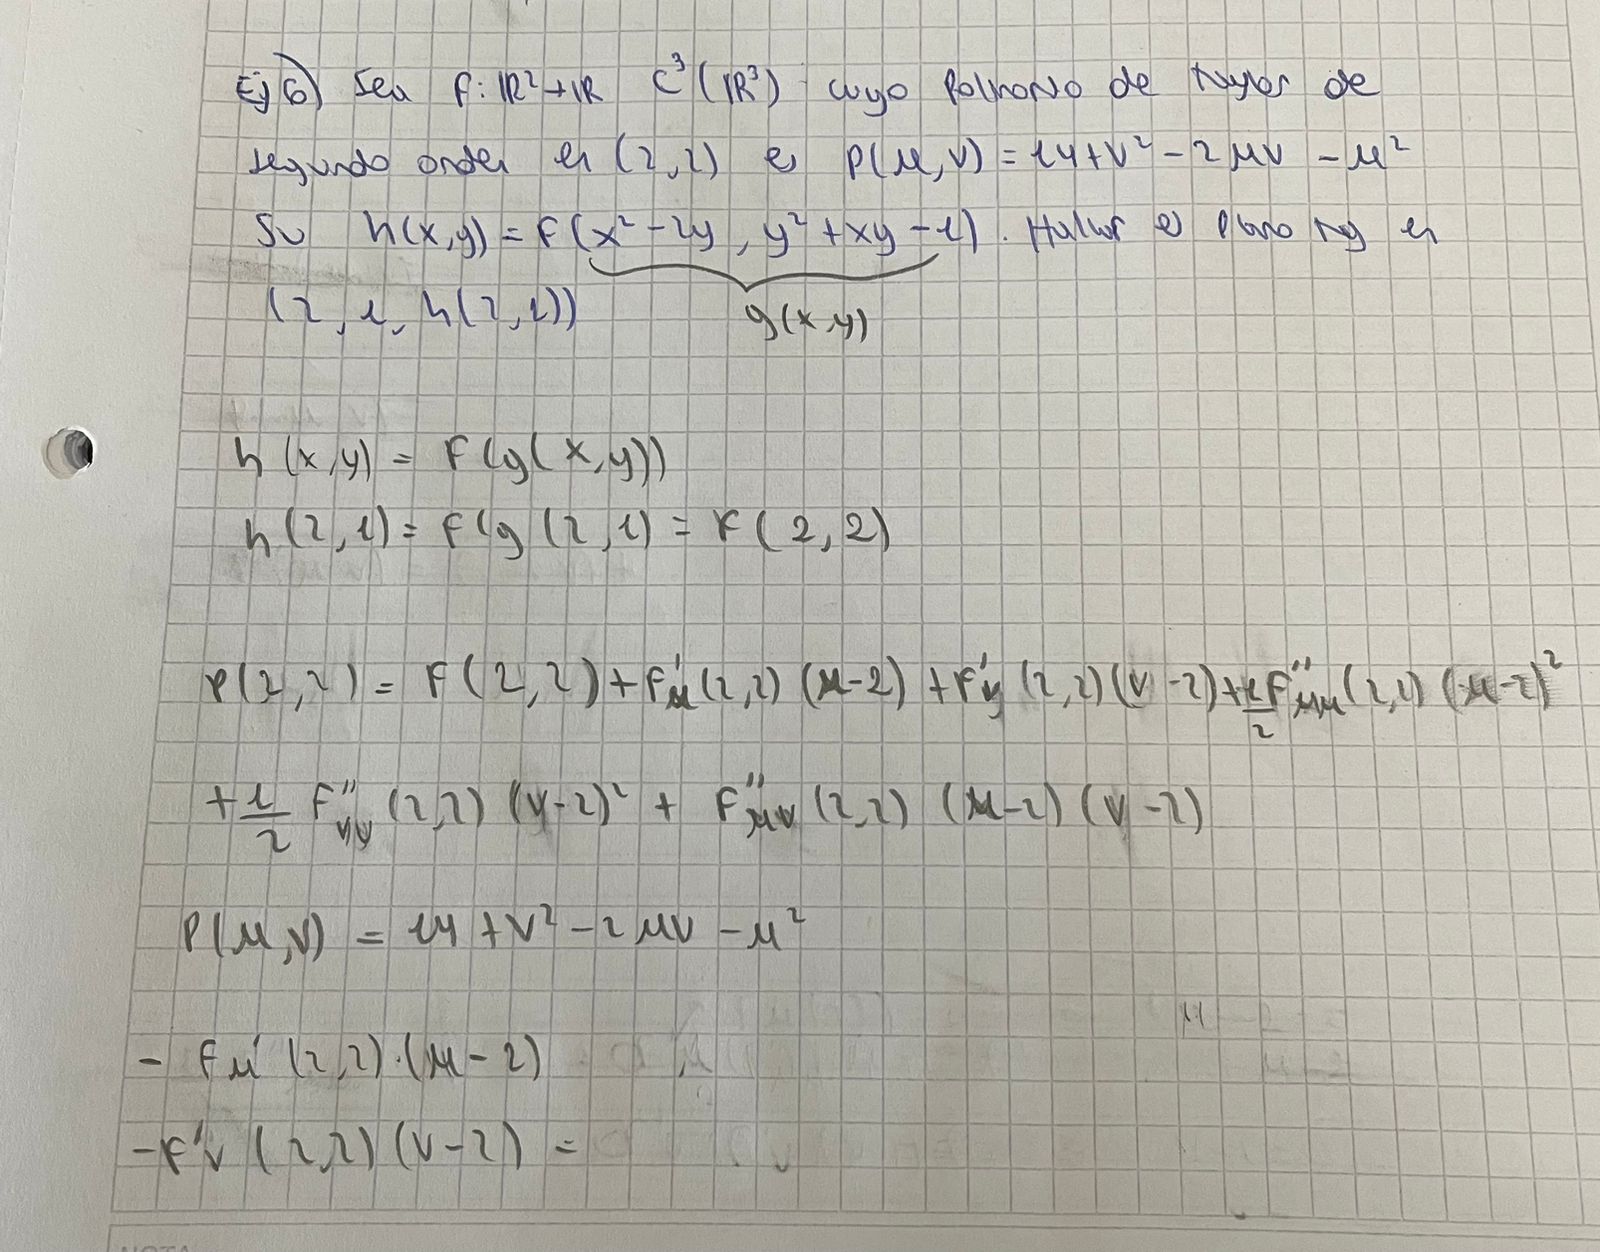 Ej 6) Sea f: ℝ²→ℝ C³(ℝ³) cuyo Polinomio de Taylor de
segundo orden en (2,2) es P(μ,v) = 14 + v² - 2μv - μ²
Su h(x,y) = F(x² - 2y, y² + xy - 1). Hallar el plano tg en
(2, 1, h(2,1)) g(x,y)
h(x,y) = F(g(x,y))
h(2,1) = F(g(2,1) = F(2,2)
P(2,2) = F(2,2) + F'μ(2,2)(μ-2) + F'y(2,2)(v-2) + 1/2 F''μμ(2,2)(μ-2)²
+ 1/2 F''vv(2,2)(v-2)² + F''μv(2,2)(μ-2)(v-2)
P(μ,v) = 14 + v² - 2μv - μ²
- Fμ'(2,2)·(μ-2)
- F'v(2,2)(v-2) =
NOTA